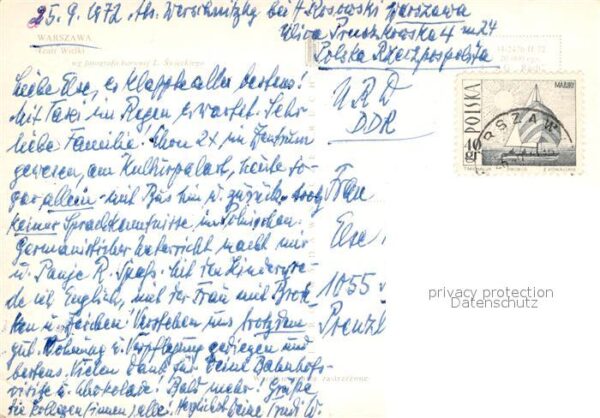 25.9.1972 Abs. Werschnitzky bei A. Klosowski Warszawa
Ulica Pruszkowska 4 m 24
Polska Rzeczpospolita
WARSZAWA
Teatr Wielki
wg fotografii barwnej L. Święckiego
Liebe Else, es klappte alles bestens!
Mit Taxe im Regen erwartet. Sehr
liebe Familie! Schon 2x im Zentrum
gewesen, am Kulturpalast, heute so-
gar allein mit Bus hin u. zurück trotz
keiner Sprachkenntnisse im Polnischen.
Germanistischer Unterricht macht mir
u. R. Spaß. Mit den Kindern re-
de ich Englisch, mit der Frau mit Brok-
ken u. Zeichen! Verstehen uns trotzdem
gut. Wohnung u. Verpflegung gediegen und
bestens. Vielen Dank für Deine Bahnhofs-
visite u. Schokolade! Bald mehr! Grüße
die Kollegen/innen) alle. Herzlichst Deine
URD
DDR
Frau
Else
1055
Prenzl
POLSKA
MAZURY
40 gr
WARSZAW
privacy protection
Datenschutz